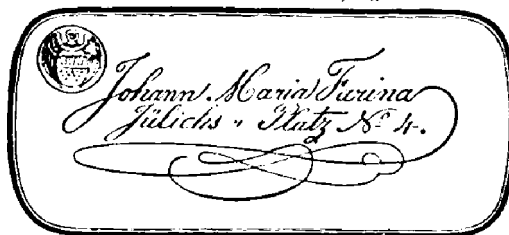 Johann Maria Farina
Jülichs - Platz Nº 4.